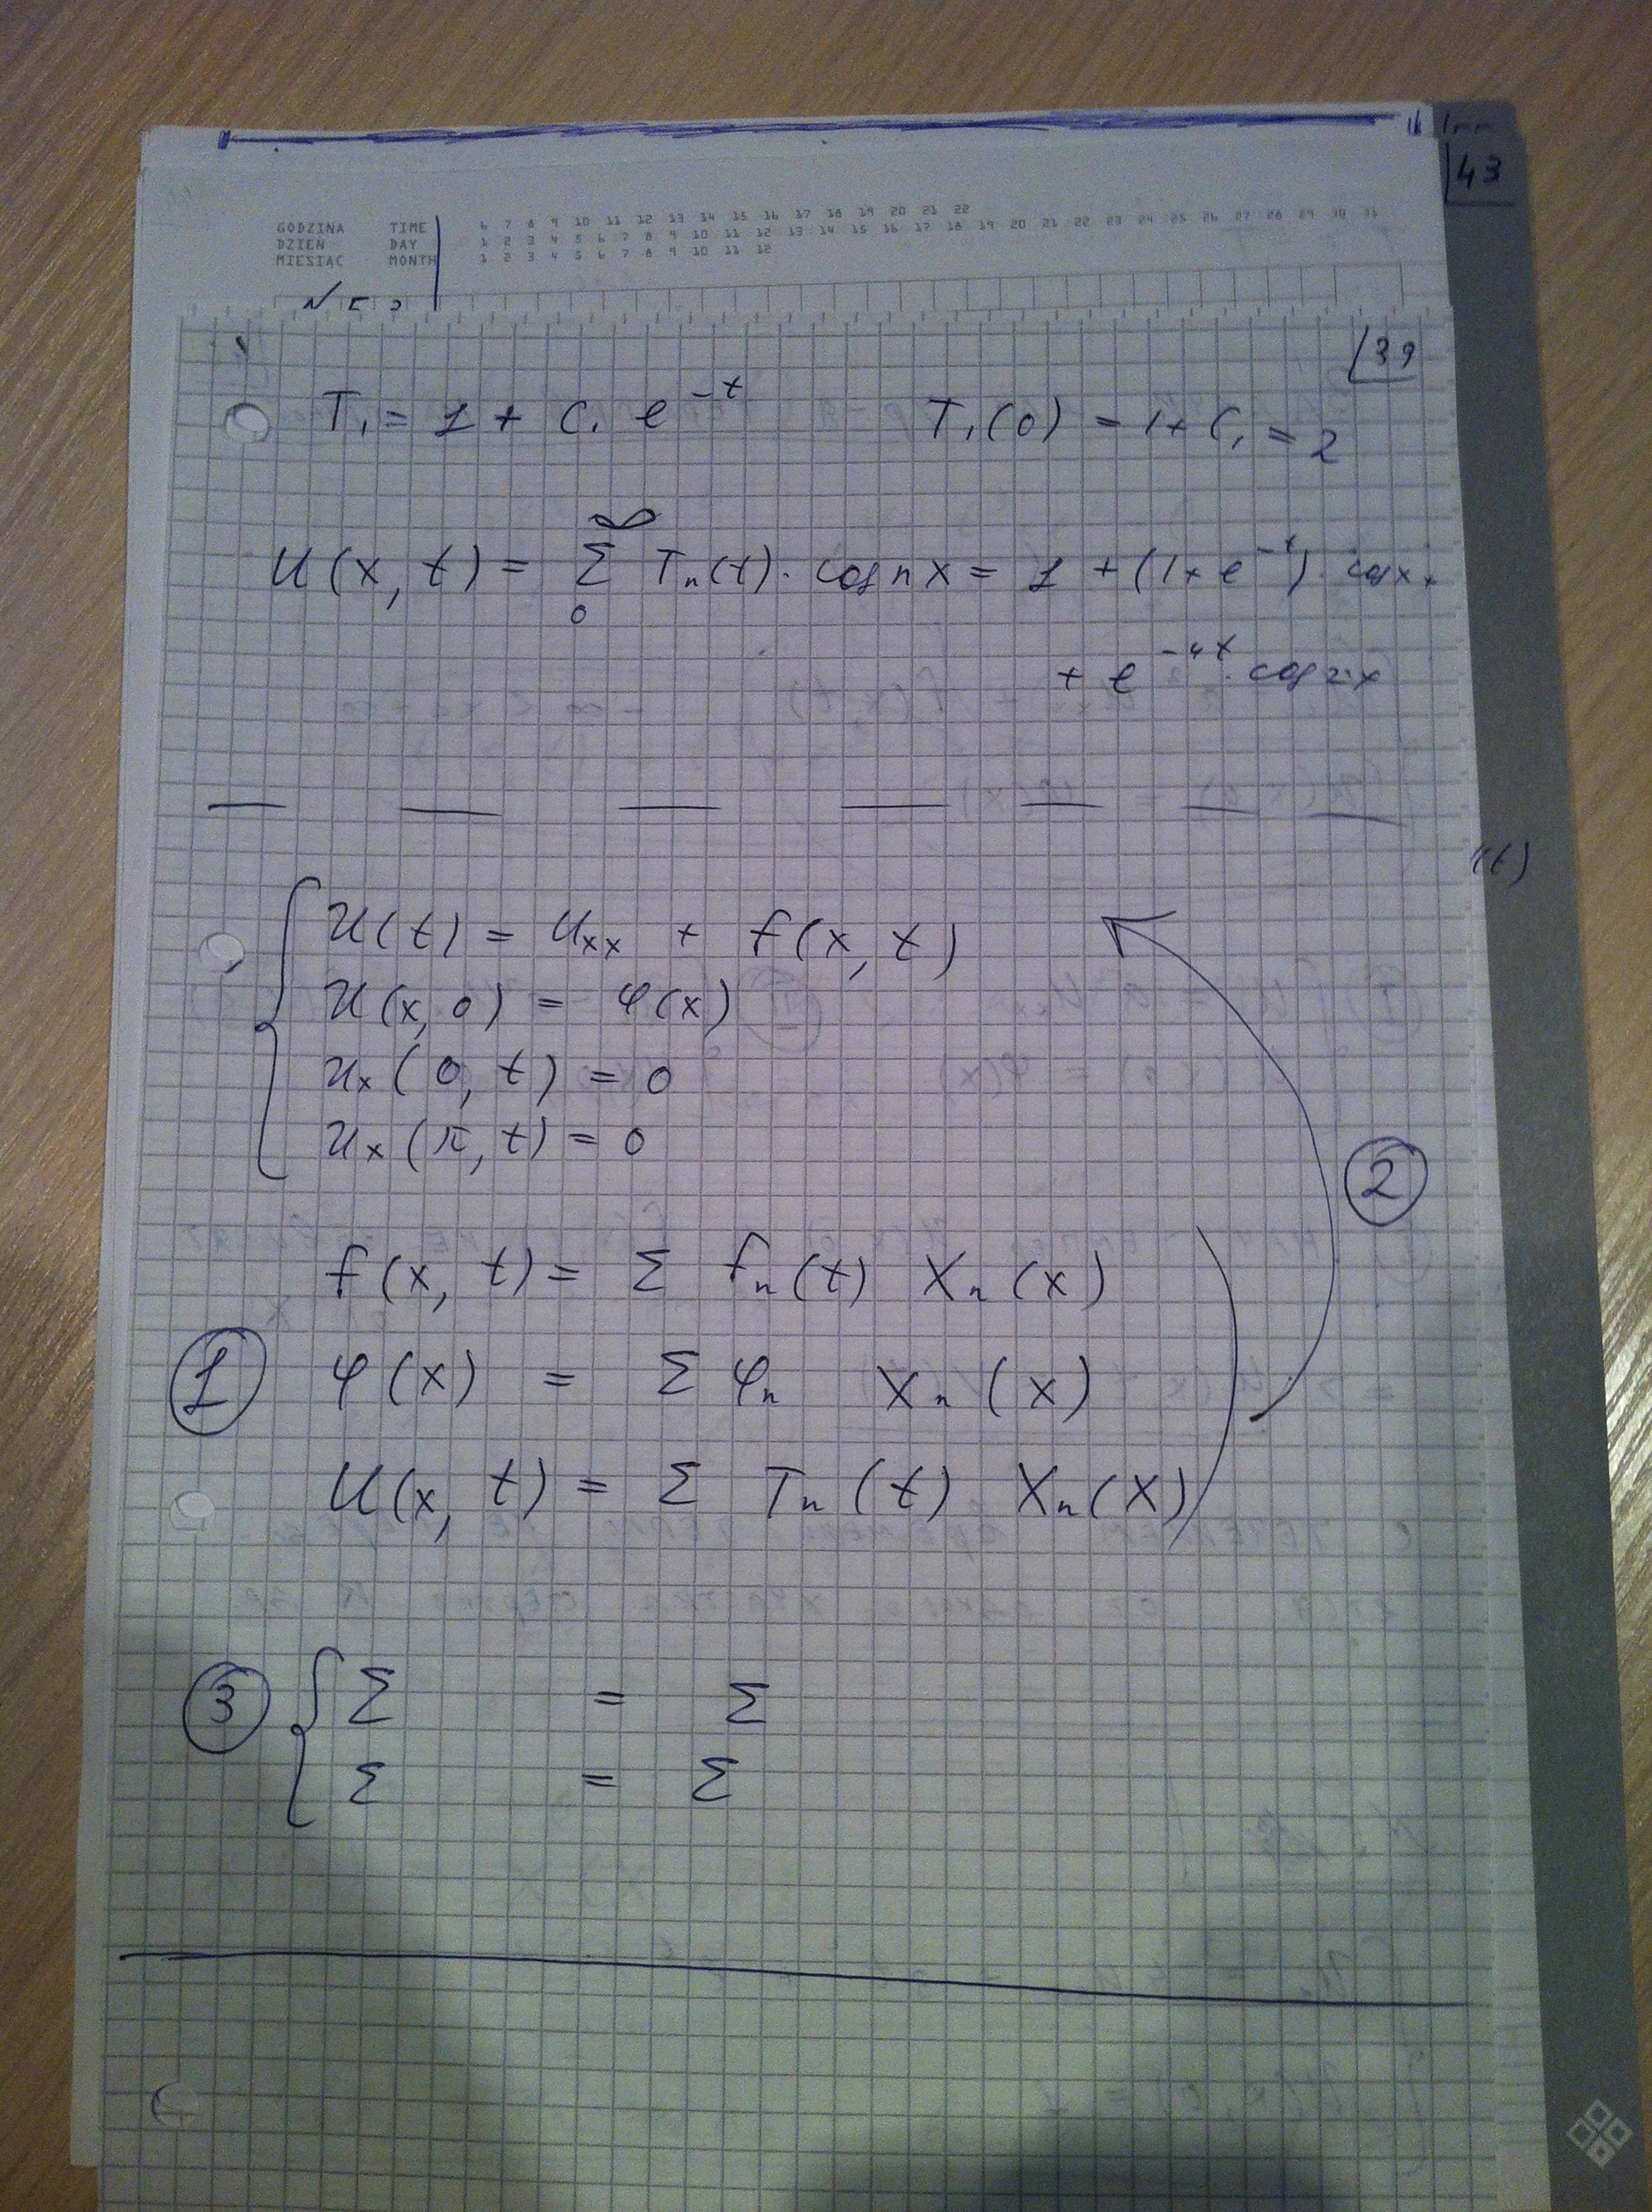 43
GODZINA TIME 6 7 8 9 10 11 12 13 14 15 16 17 18 19 20 21 22
DZIEŃ DAY 1 2 3 4 5 6 7 8 9 10 11 12 13 14 15 16 17 18 19 20 21 22 23 24 25 26 27 28 29 30 31
MIESIĄC MONTH 1 2 3 4 5 6 7 8 9 10 11 12
39
T₁ = 1 + C₁ e^{-t} T₁(0) = 1 + C₁ = 2
U(x, t) = ∑_{0}^{∞} Tₙ(t) · cos n x = 1 + (1 + e^{-t}) · cos x +
+ e^{-4t} · cos 2x
(t)
U(t) = Uₓₓ + f(x, t)
U(x, 0) = φ(x)
Uₓ(0, t) = 0
Uₓ(π, t) = 0
②
f(x, t) = Σ fₙ(t) Xₙ(x)
① φ(x) = Σ φₙ Xₙ(x)
U(x, t) = Σ Tₙ(t) Xₙ(x)
③ { Σ = Σ
Σ = Σ